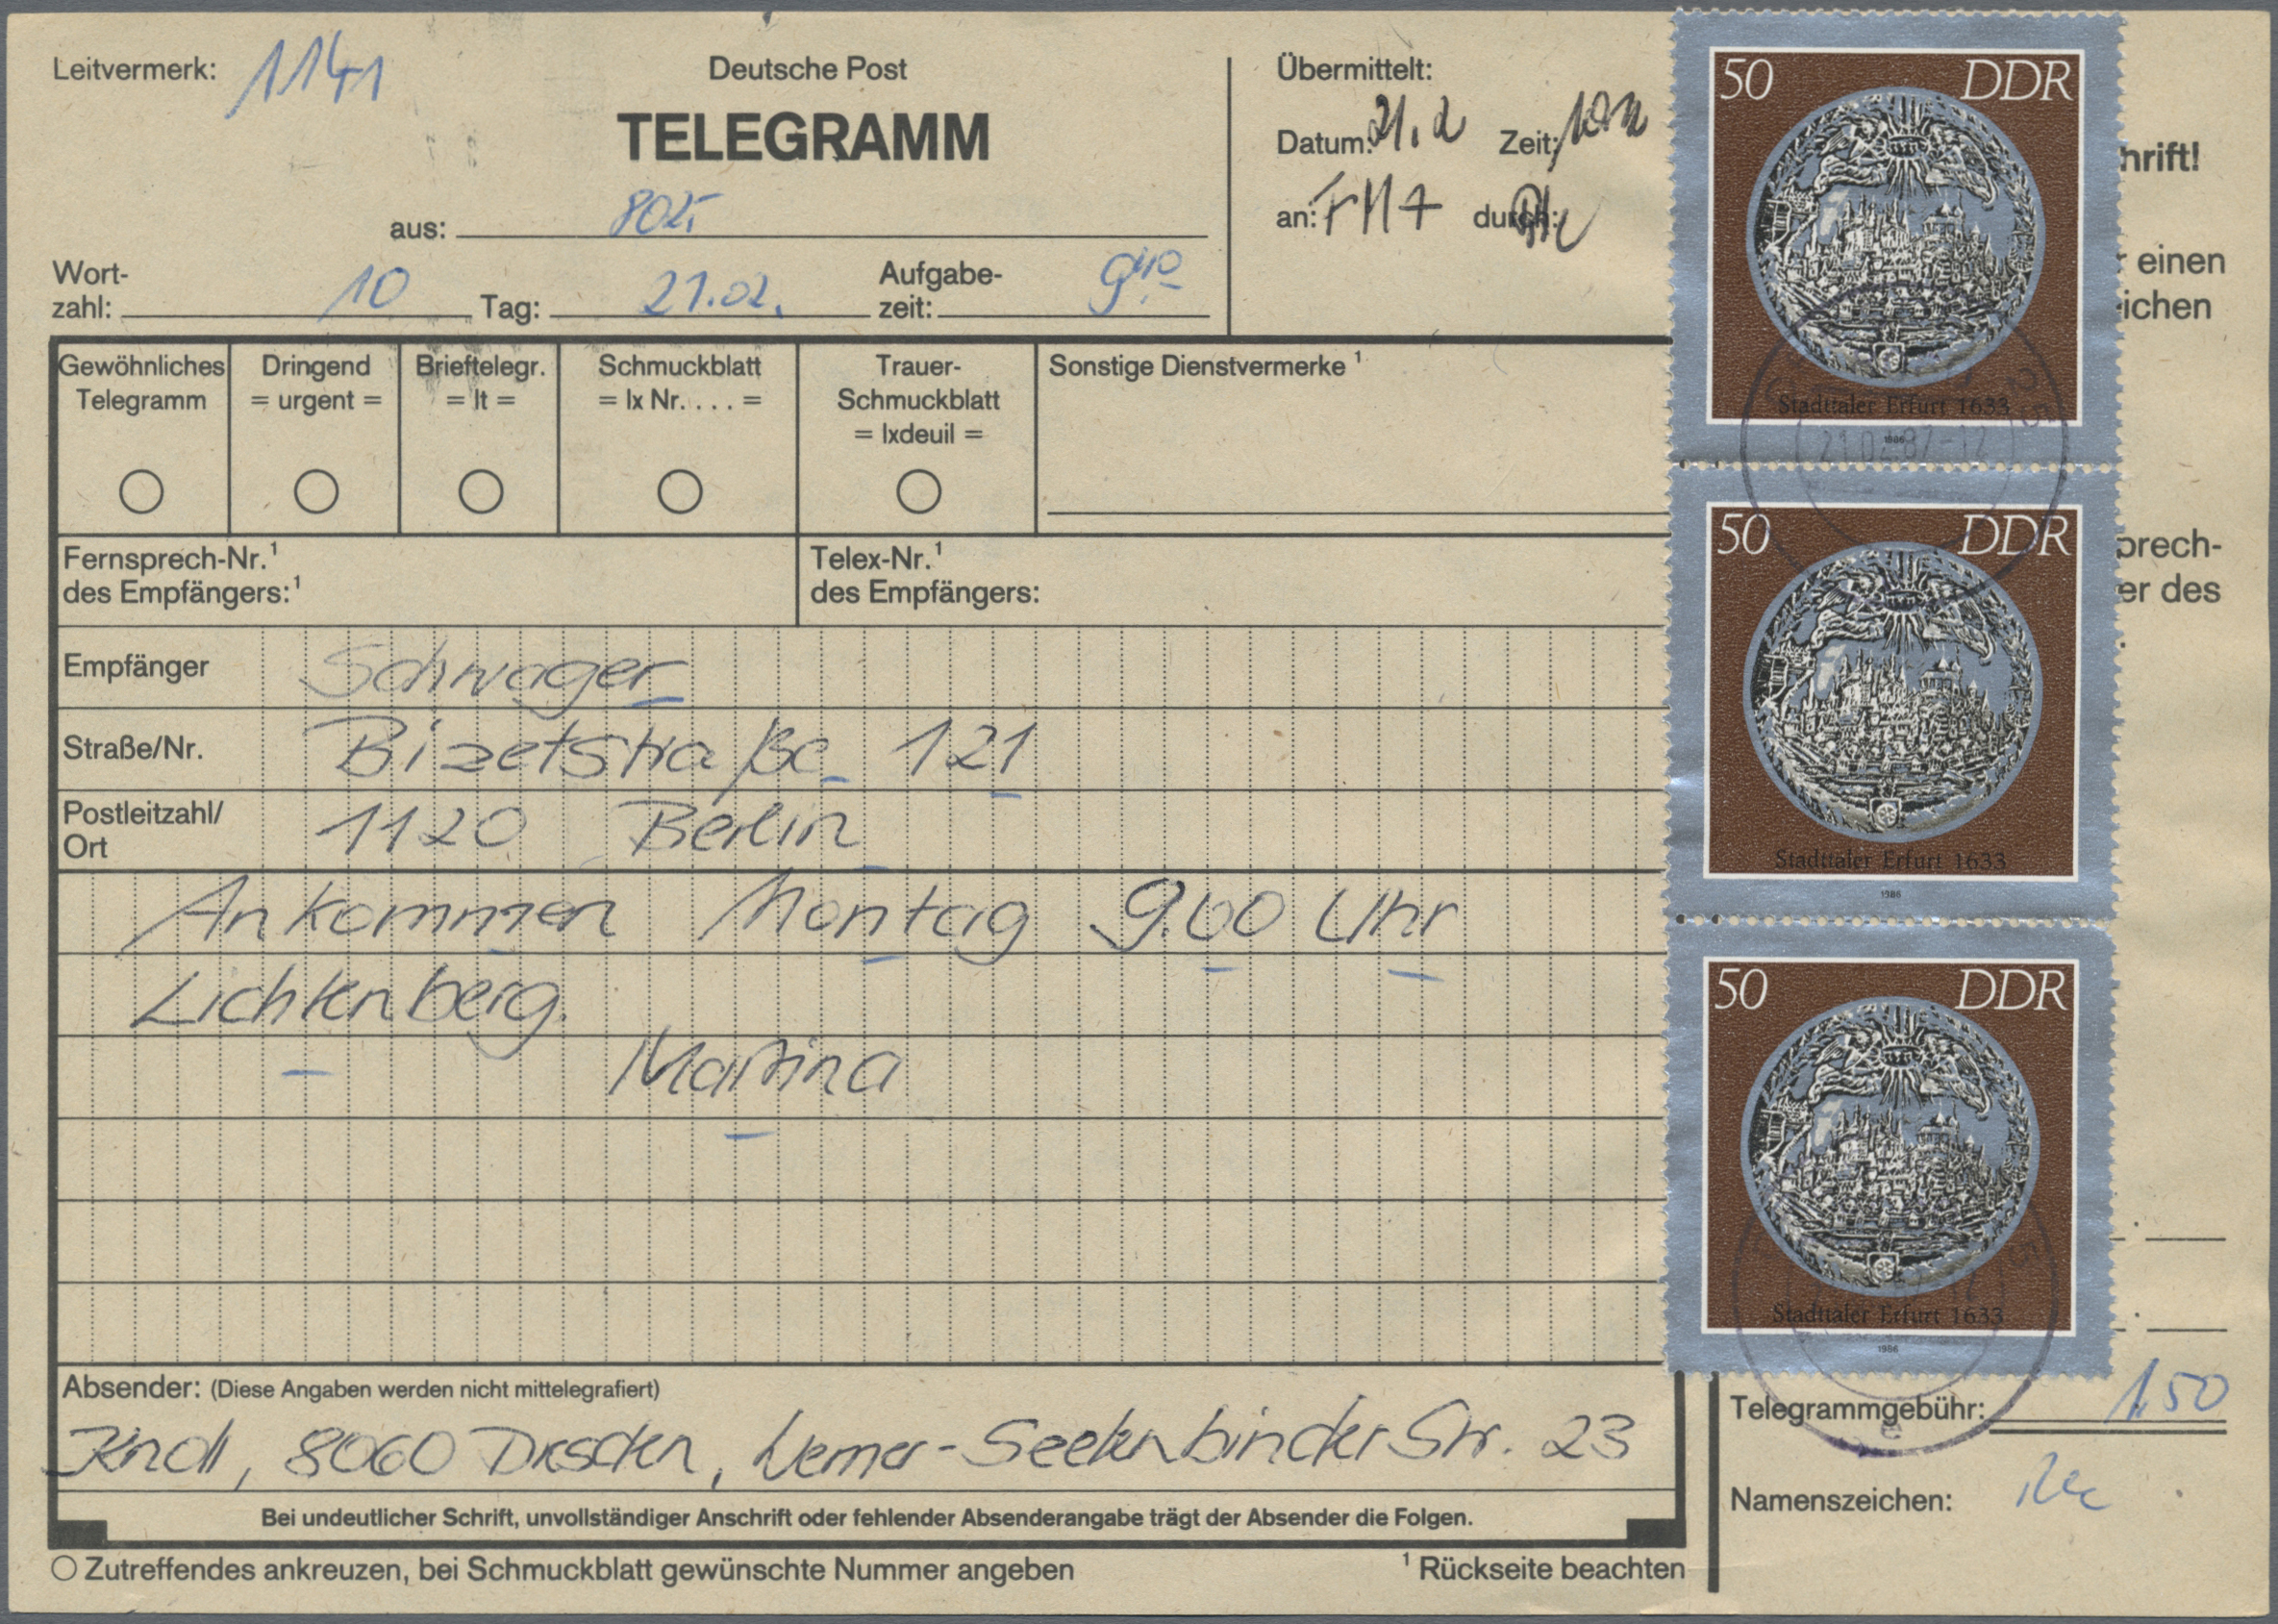 Leitvermerk: 1141
Deutsche Post
TELEGRAMM
aus: 8025
Wort-
zahl: 10 Tag: 21.02. Aufgabe-
zeit: 9 40
Übermittelt:
Datum: 21.2 Zeit:
an: durch:
hrift!
einen
ichen
prech-
er des
Gewöhnliches
Telegramm
Dringend
= urgent =
Brieftelegr.
= lt =
Schmuckblatt
= lx Nr. . . . =
Trauer-
Schmuckblatt
= lxdeuil =
Sonstige Dienstvermerke ¹
Fernsprech-Nr.¹
des Empfängers:¹
Telex-Nr.¹
des Empfängers:
Empfänger Schwager
Straße/Nr. Bizetstraße 121
Postleitzahl/
Ort 1120 Berlin
Ankommen Montag 9.00 Uhr
Lichtenberg.
Martina
Absender: (Diese Angaben werden nicht mittelegrafiert)
8060 Dresden, Werner-Seelenbinder Str. 23
Bei undeutlicher Schrift, unvollständiger Anschrift oder fehlender Absenderangabe trägt der Absender die Folgen.
Zutreffendes ankreuzen, bei Schmuckblatt gewünschte Nummer angeben
¹ Rückseite beachten
50 DDR
Stadttaler Erfurt 1633
1986
21.02.87-12
50 DDR
Stadttaler Erfurt 1633
1986
50 DDR
Stadttaler Erfurt 1633
1986
Telegrammgebühr: 1,50
Namenszeichen: